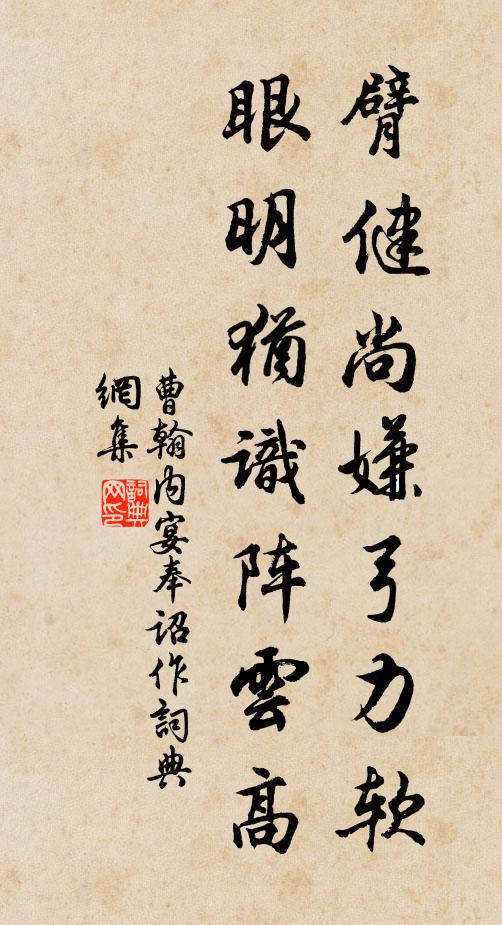 臂健尚嫌弓力软
眼明猶識阵雲高
曹翰内宴奉诏作詞典
網集
詞典
网印